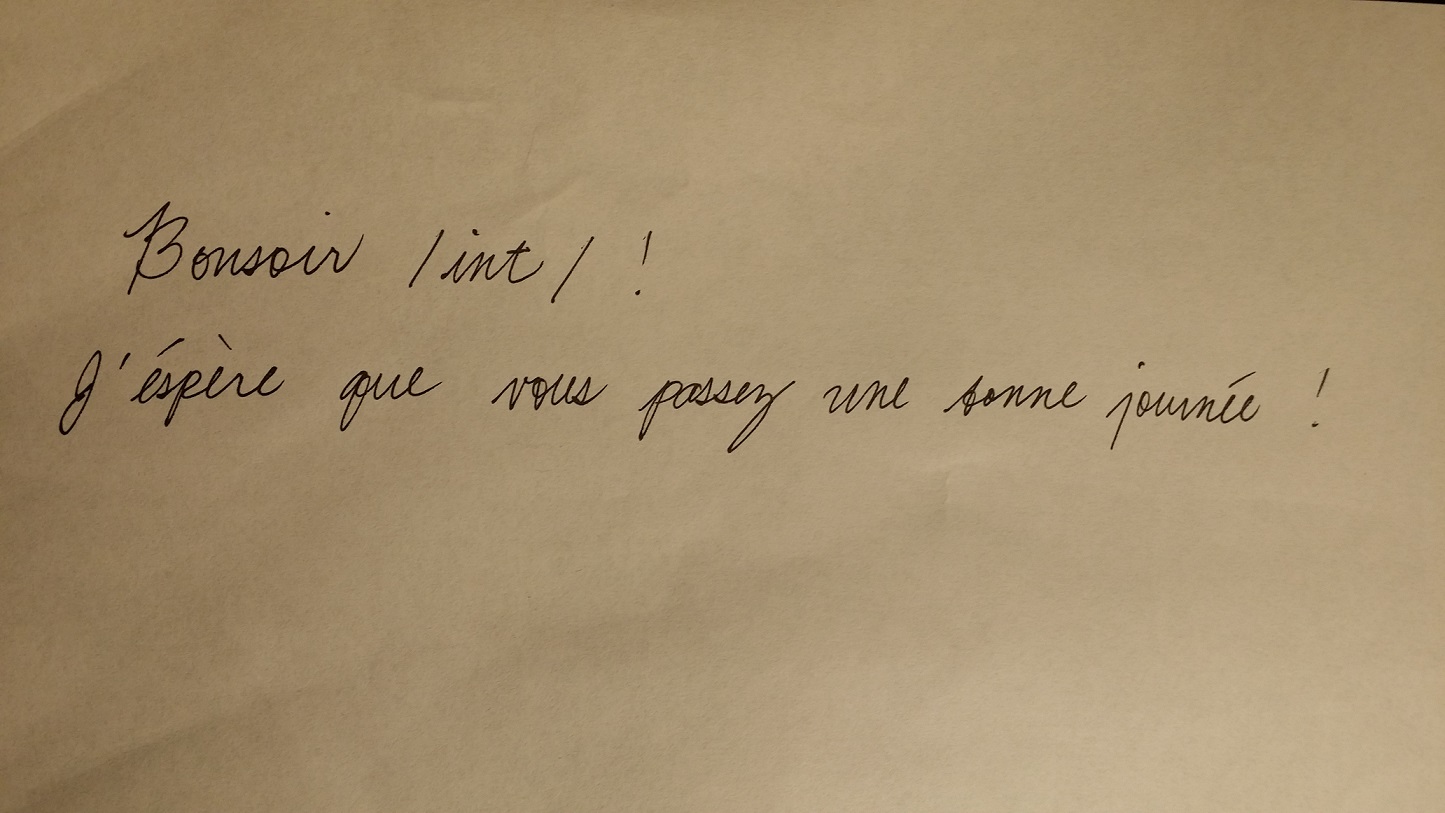 Bonsoir /int/ !
J'éspère que vous passez une bonne journée !